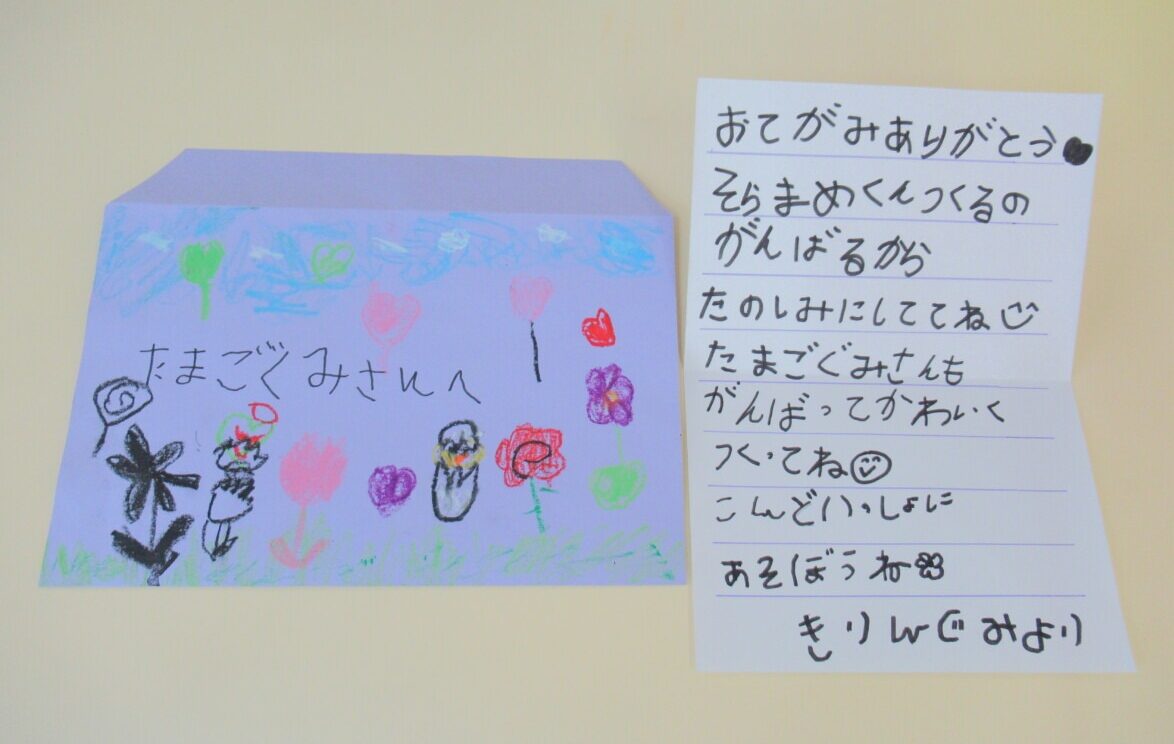 たまごぐみさんへ
おてがみありがとう♥
そらまめくんつくるの
がんばるから
たのしみにしててね☺
たまごぐみさんも
がんばってかわいく
つくってね☺
こんどいっしょに
あそぼうね✿
きりんぐみより